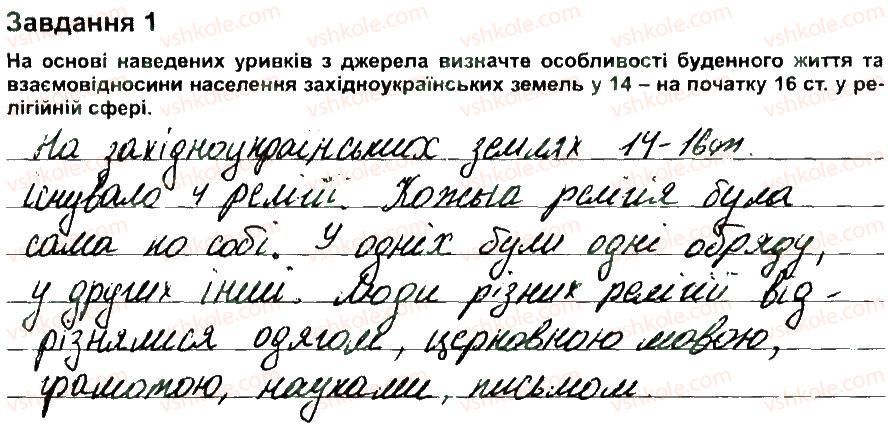 Завдання 1
На основі наведених уривків з джерела визначте особливості буденного життя та
взаємовідносини населення західноукраїнських земель у 14 – на початку 16 ст. у ре-
лігійній сфері.
На західноукраїнських землях 14-16 ст.
існувало 4 релігії. Кожна релігія була
сама по собі. У одніх були одні обряду,
у других інші. Люди різних релігій від-
різнялися одягом, церковною мовою,
грамотою, науками, письмом.